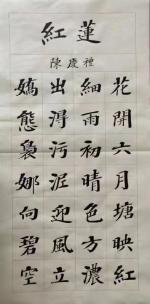 紅蓮
陳慶禮
花開六月塘映紅
細雨初晴色方濃
出淂污泥迎風立
嬌態裊娜向碧空